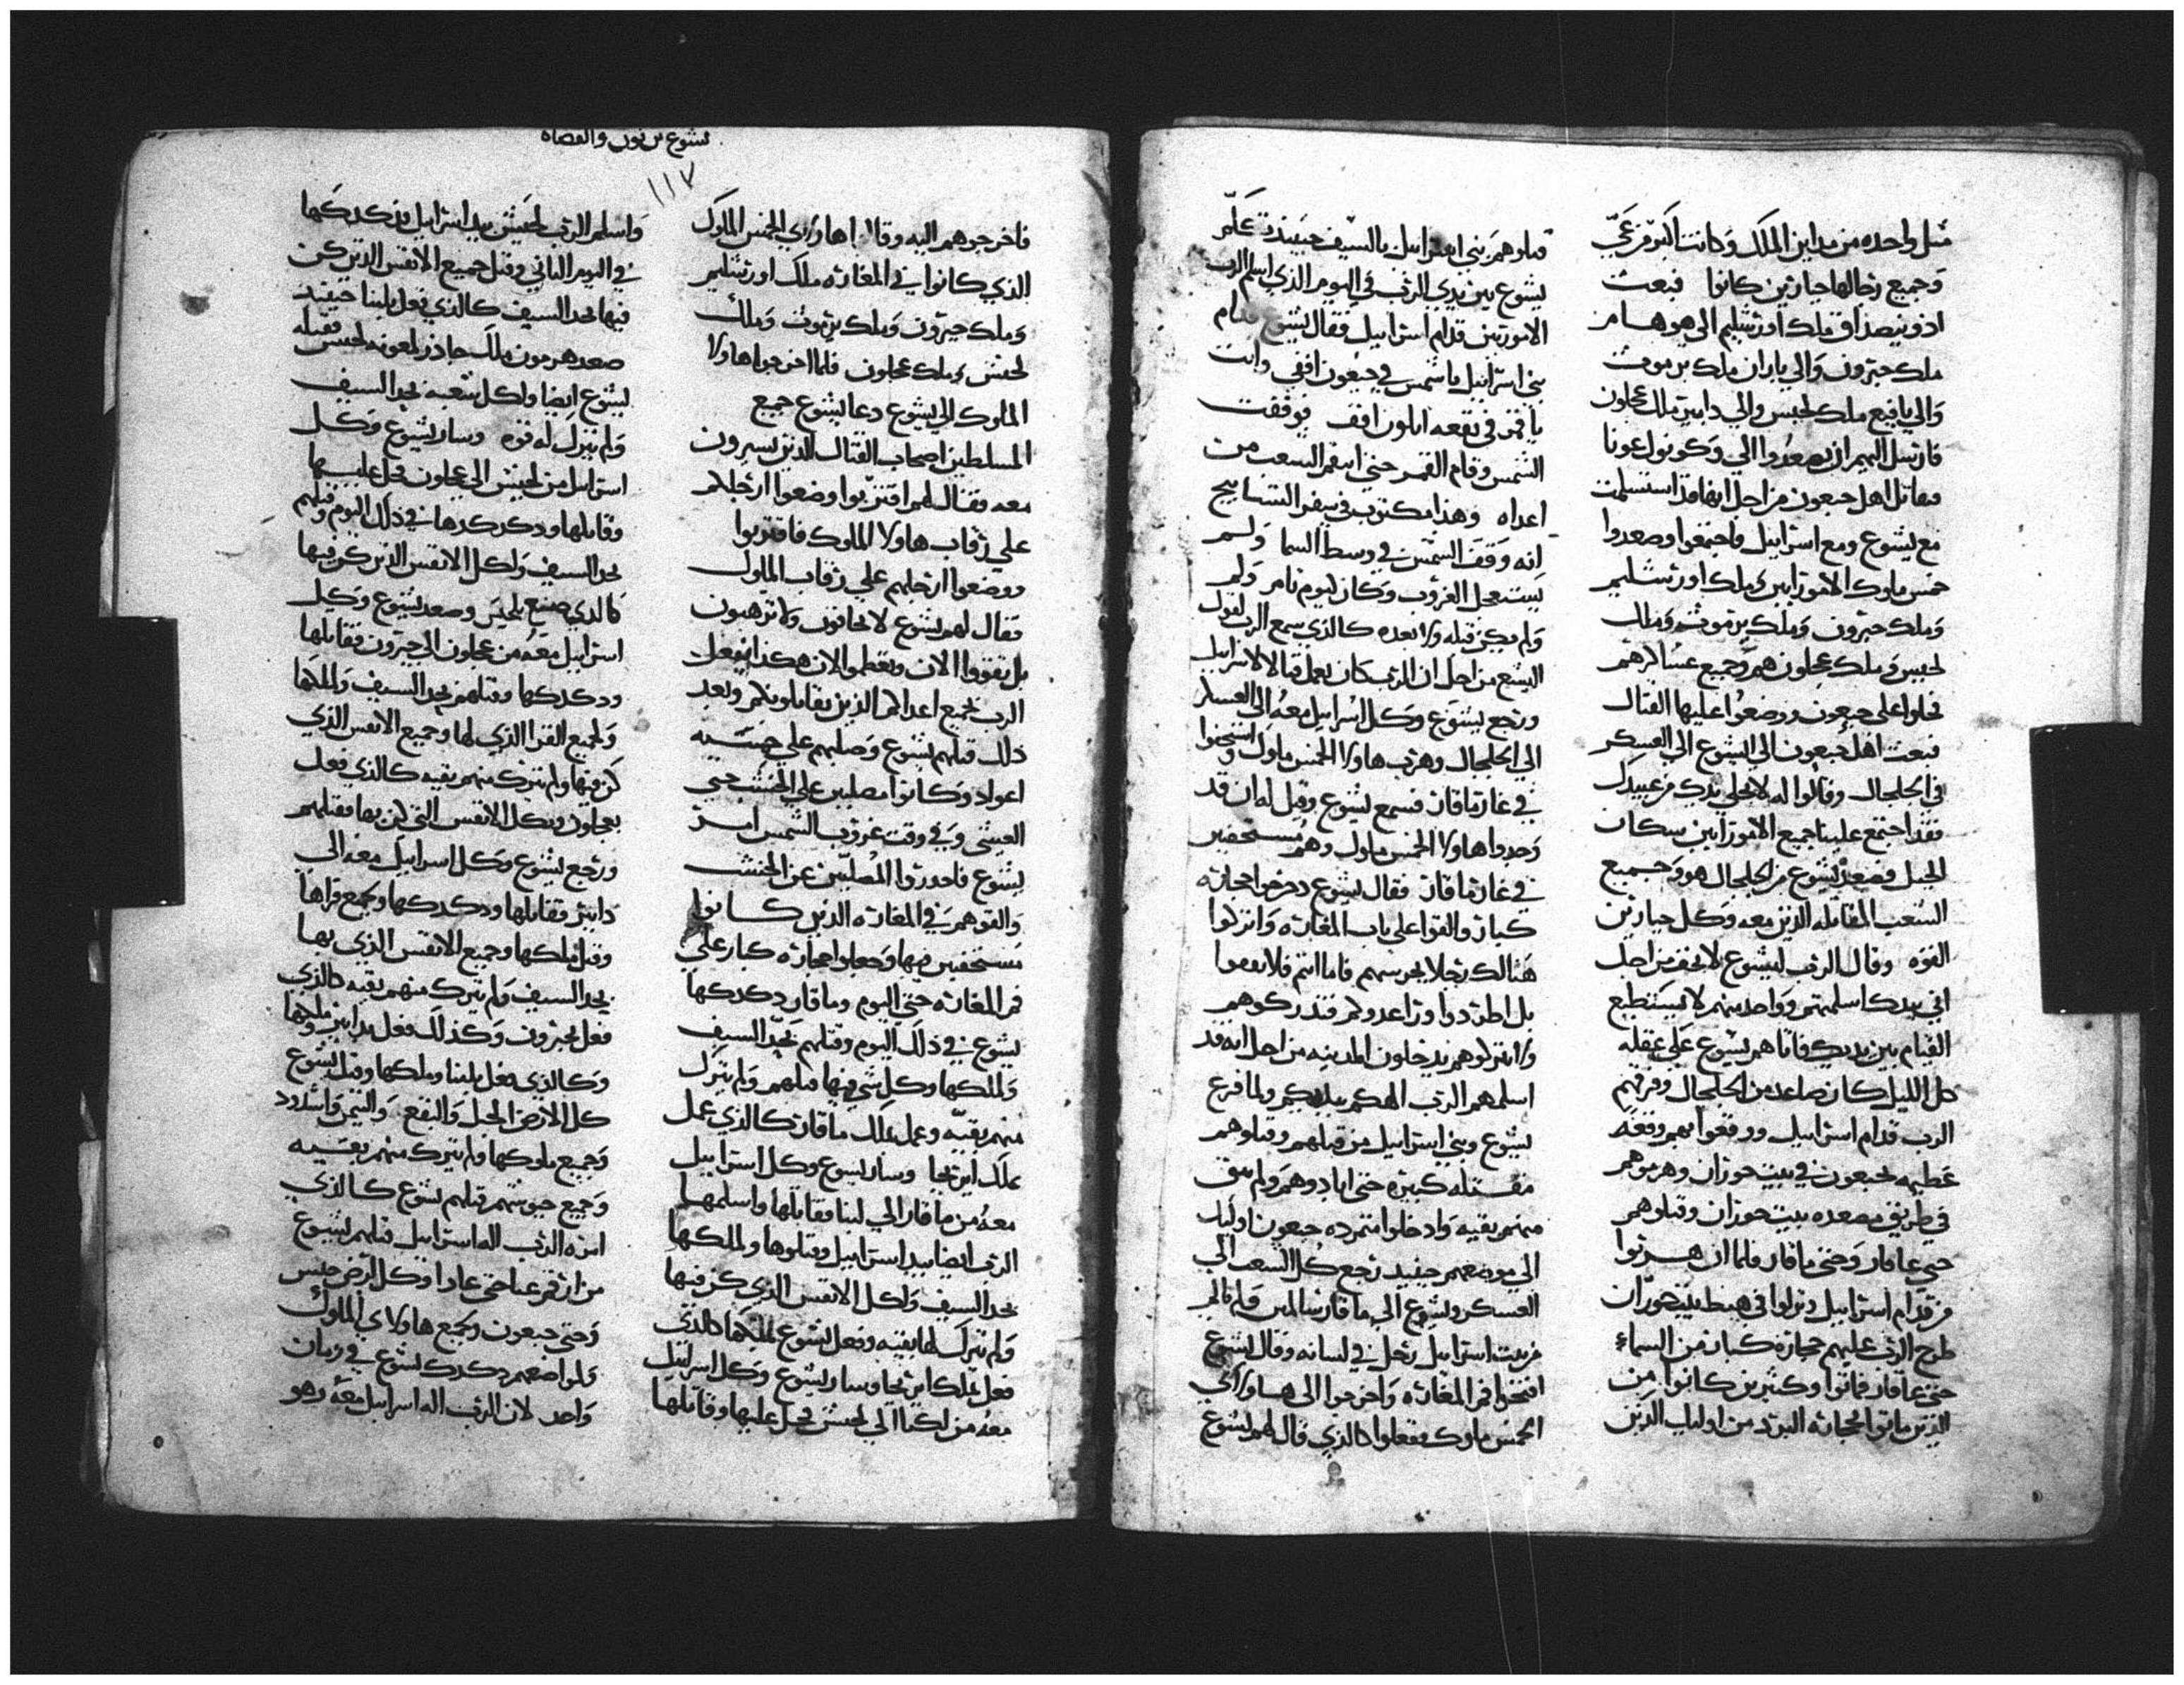 مثل واحده من مداين الملك وكانت اكبر من عَيّ
وجميع رجالها جبارين كانوا فبعث
ادونيصداق ملك اورشليم الى هوهامز
ملك حبرون والي ياران ملك يرموث
والي يافيع ملك لحيس والي دابير ملك عجلون
فارسل اليهم ان يصعدوا الي وكونوا عونا
مقاتل اهل جبعون من اجل انها قد استسلمت
مع يشوع ومع اسراييل فاجتمعوا وصعدوا
خمس ملوك الامورانيين ملك اورشليم
وملك حبرون وملك يرموث وملك
لحيس وملك عجلون هم وجميع عساكرهم
فحلوا على جبعون ووضعوا عليها القتال
فبعث اهل جبعون الي يشوع الي العسكر
في الجلجال وقالوا له لا تخلي يدك من عبيدك
فقد اجتمع علينا جميع الامورانيين سكان
الجبل فصعد يشوع من الجلجال هو وجميع
الشعب المقاتله الذين معه وكل جبارين
القوه وقال الرب ليشوع لا تخف من اجل
اني بيدك اسلمتهم وواحد منهم لا يستطيع
القيام بين يديك فاتاهم يشوع على غفله
كل الليل كان صاعد من الجلجال وفرقهم
الرب قدام اسراييل ووقعوا بهم وقعه
عظيمه بجبعون في بيت حوران وهزموهم
في طريق مصعده بيت حوران وقتلوهم
حتى عاقار وحتى ماقار فلما ان هربوا
من قدام اسراييل ونزلوا في هبط بيت حوران
طرح الرب عليهم حجاره كبار من السماء
حتى عاقار فماتوا وكثيرين كانوا من
الذين ماتوا بحجاره البرد من اوليك الذين
قتلوهم بني اسراييل بالسيف حينيذ تكلم
يشوع بين يدي الرب في اليوم الذي اسلم الرب
الامورنين قدام اسراييل فقال يشوع قدام
بني اسراييل ياشمس في جبعون اقفي وانت
ياقمر في بقعه ايلون اقف فوقفت
الشمس وقام القمر حتى انتقم الشعب من
اعداه وهذا مكتوب في سفر التسابيح
انه وقفت الشمس في وسط السما ولم
يستعجل الغروب وكان ليوم تام ولم
ولم يكن قبله ولا بعده كالذي سمع الرب لقول
اليشع من اجل ان الرب كان يعمل قتالا لاسراييل
ورجع يشوع وكل اسراييل معه الى العسكر
الي الجلجال وهرب هاولا الخمس ملوك واستخفوا
في غار ماقار فسمع يشوع وقيل له ان قد
وجدوا هاولا الخمس ملوك وهم مستخفيين
في غار ماقار فقال يشوع دحرجوا حجاره
كبار والقوا على باب المغاره وانزلوا
هنالك رجلا يحرسهم فاما انتم فلا تقوموا
بل اطردوا ورا اعدوكم فتدركوهم
ولا تتركوهم يدخلون المدينه من اجل انه قد
اسلمهم الرب الهكم بيديكم ولما فرغ
يشوع وبني اسراييل من قتلهم وقتلوهم
مقتله كبيره حتى ابادوهم ولم يبق
منهم بقيه وادخلوا متمرده جبعون اوليك
الي موضعهم حينيذ رجع كل الشعب الي
العسكر ويشوع الي ماقار سالمين ولم يتالم
من بيت اسراييل رجل في لسانه وقال يشوع
افتحوا فم المغاره واخرجوا الى هاولاي
الخمس ملوك ففعلوا كالذي قال لهم يشوع
يشوع بن نون والقضاه
١١٧
فاخرجوهم اليه وقالا هاولاي الخمس الملوك
الذي كانوا في المغاره ملك اورشليم
وملك حبرون وملك يرموث وملك
لحيس وملك عجلون فلما اخرجوا هاولا
الملوك الي يشوع دعا يشوع جميع
المسلطين اصحاب القتال الذين يسيرون
معه فقال لهم اقتربوا وضعوا ارجلكم
على رقاب هاولا الملوك فاقتربوا
ووضعوا ارجلهم على رقاب الملوك
فقال لهم يشوع لا تخافون ولا ترهبون
بل تقووا الان وتعظموا الان هكذا يفعل
الرب بجميع اعداكم الذين تقاتلونهم وبعد
ذلك قتلهم يشوع وصلبهم علي خمسه
اعواد وكانوا مصلبين علي الخشب حتي
العيشي وفي وقت غروب الشمس امر
يشوع فاحدروا المصلبين عن الخشب
والقوهم في المغاره الذين كانوا
مستخفيين فيها وجعلوا حجاره كبار علي
فم المغاره حتي اليوم وماقار دكدكها
يشوع في ذلك اليوم وقتلهم بحد السيف
ولملكها وكل شي فيها قتلهم ولم يترك
منهم بقيه وعمل بملك ماقار كالذي عمل
بملك اريحا وسار يشوع وكل اسراييل
معه من ماقار الي لبنا فقاتلها واسلمها
الرب ايضا بيد اسراييل وقتلوها ولملكها
بحد السيف ولكل الانفس الذي كن فيها
ولم يترك لها بقيه وفعل يشوع لملكها كالذي
فعل بملك اريحا وسار يشوع وكل اسراييل
معه من لبنا الي لحيش فحل عليها وقاتلها
واسلم الرب لحيش بيد اسراييل فدكدكها
في اليوم الثاني وقتل جميع الانفس الذين كن
فيها بحد السيف كالذي فعل بلبنا حينيذ
صعد هرمون ملك جاذر لمعونه لحيس فقتله
يشوع ايضا ولكل شعبه بحد السيف
ولم يترك له قوه وسار يشوع وكل
اسراييل من لحيش الي عجلون فحل عليها
وقاتلها ودكدكها في ذلك اليوم وقتلهم
بحد السيف ولكل الانفس الذين كن فيها
كالذي صنع بلحيس وصعد يشوع وكل
اسراييل معه من عجلون الي حبرون فقاتلها
ودكدكها وقتلهم بحد السيف ولملكها
ولجميع القرا الذي لها وجميع الانفس الذي
كن فيها ولم يترك منهم بقيه كالذي فعل
بعجلون وبكل الانفس التي كن بها فقتلهم
ورجع يشوع وكل اسراييل معه الي
دابير فقاتلها ودكدكها وجميع قراها
وقتل ملكها وجميع الانفس الذي بها
بحد السيف ولم يترك منهم بقيه كالذي
فعل بحبرون وكذلك فعل بدابير وملكها
وكالذي فعل بلبنا وملكها وقتل يشوع
كل الارض الجبل والبقع والتيمن واشدود
وجميع ملوكها ولم يترك منهم بقيه
وجميع جيوشهم قتلهم يشوع كالذي
امره الرب اله اسراييل قتلهم يشوع
من ارقم عيا حتى عادا وكل ارض جيس
وحتى جبعون وجميع هاولاي الملوك
ولمواضعهم دكدك يشوع في زمان
واحد لان الرب اله اسراييل معه وهو